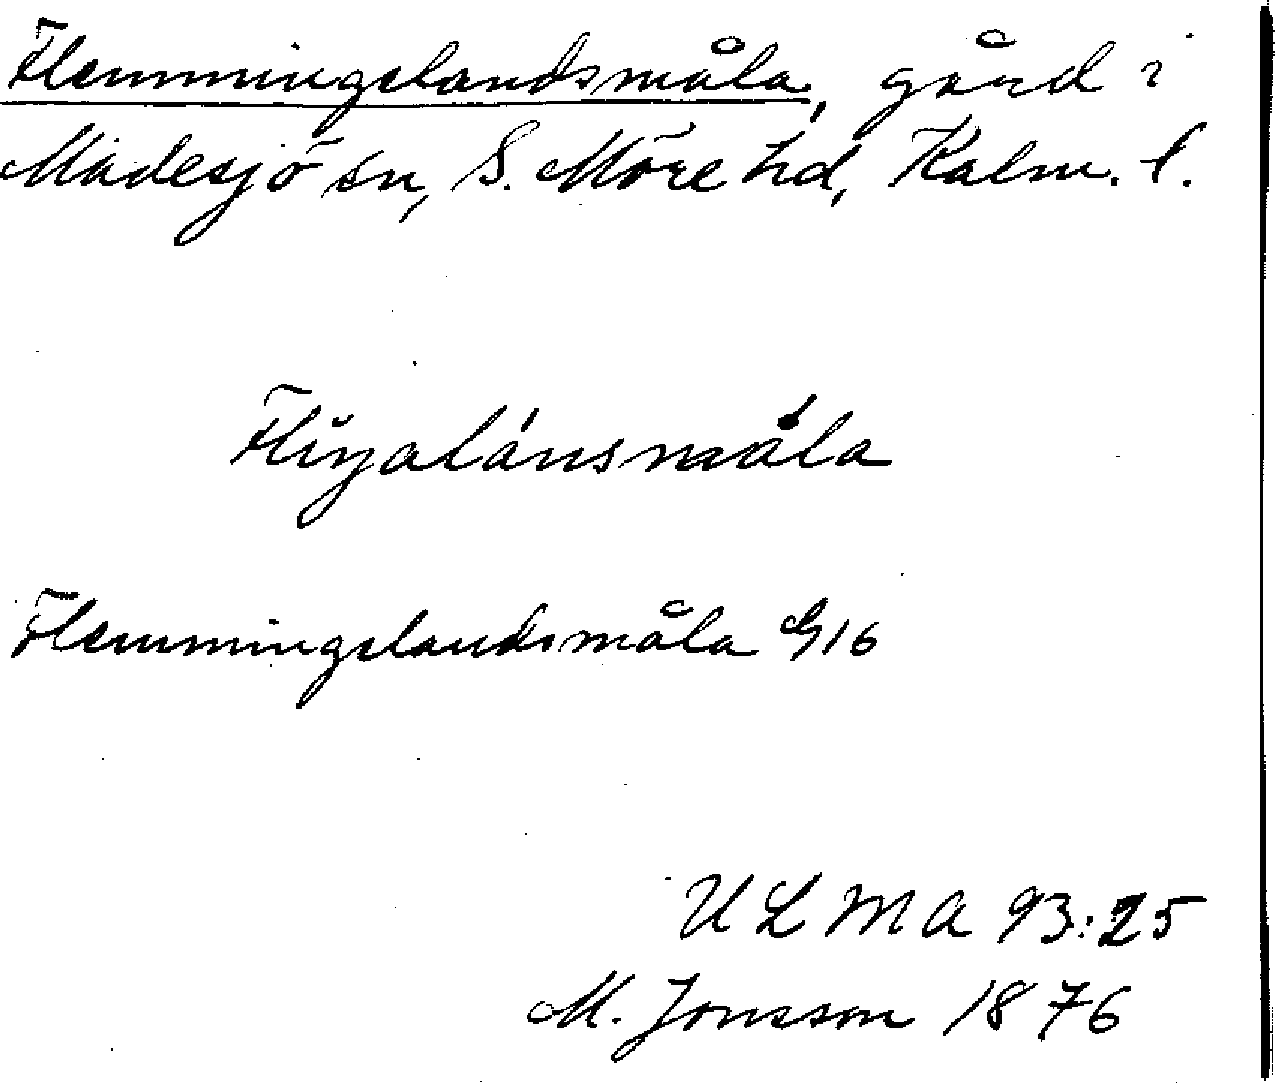 Flemmingslandsmåla, gård i
Madesjö sn, S. Möre hd, Kalm. l.
Flemmingslandsmåla G16
ULMA 93:25
M. Jonsson 1876